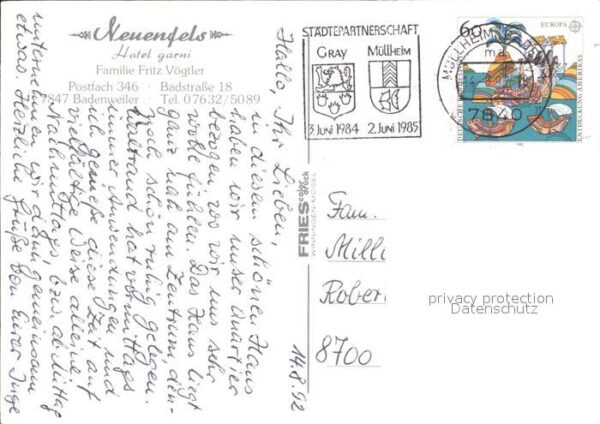 Neuenfels
Hotel garni
Familie Fritz Vögtler
Postfach 346 · Badstraße 18
7847 Badenweiler · Tel. 07632/5089
STÄDTEPARTNERSCHAFT
GRAY MÜLLHEIM
3. JUNI 1984 2. JUNI 1985
MÜLLHEIM
7840
60
EUROPA
ENTDECKUNG AMERIKAS
DEUTSCHE BUNDESPOST
Hallo, Ihr Lieben,
in diesem schönen Haus
haben wir unser Quartier
bezogen, wo wir uns sehr
wohl fühlen. Das Haus liegt
ganz nah am Zentrum, den-
noch schön ruhig gelegen.
Waltraud hat vormittags
immer Anwendungen und
ich genieße diese Zeit auf
vielfältige Weise alleine.
Nachmittags, bzw. ab Mittag
unternehmen wir dann gemeinsam
etwas. Herzliche Grüße von Eurer Inge
14.8.92
FRIES color druck
WINNINGEN-MOSEL
Fam.
Milli
Rober
8700
privacy protection
Datenschutz